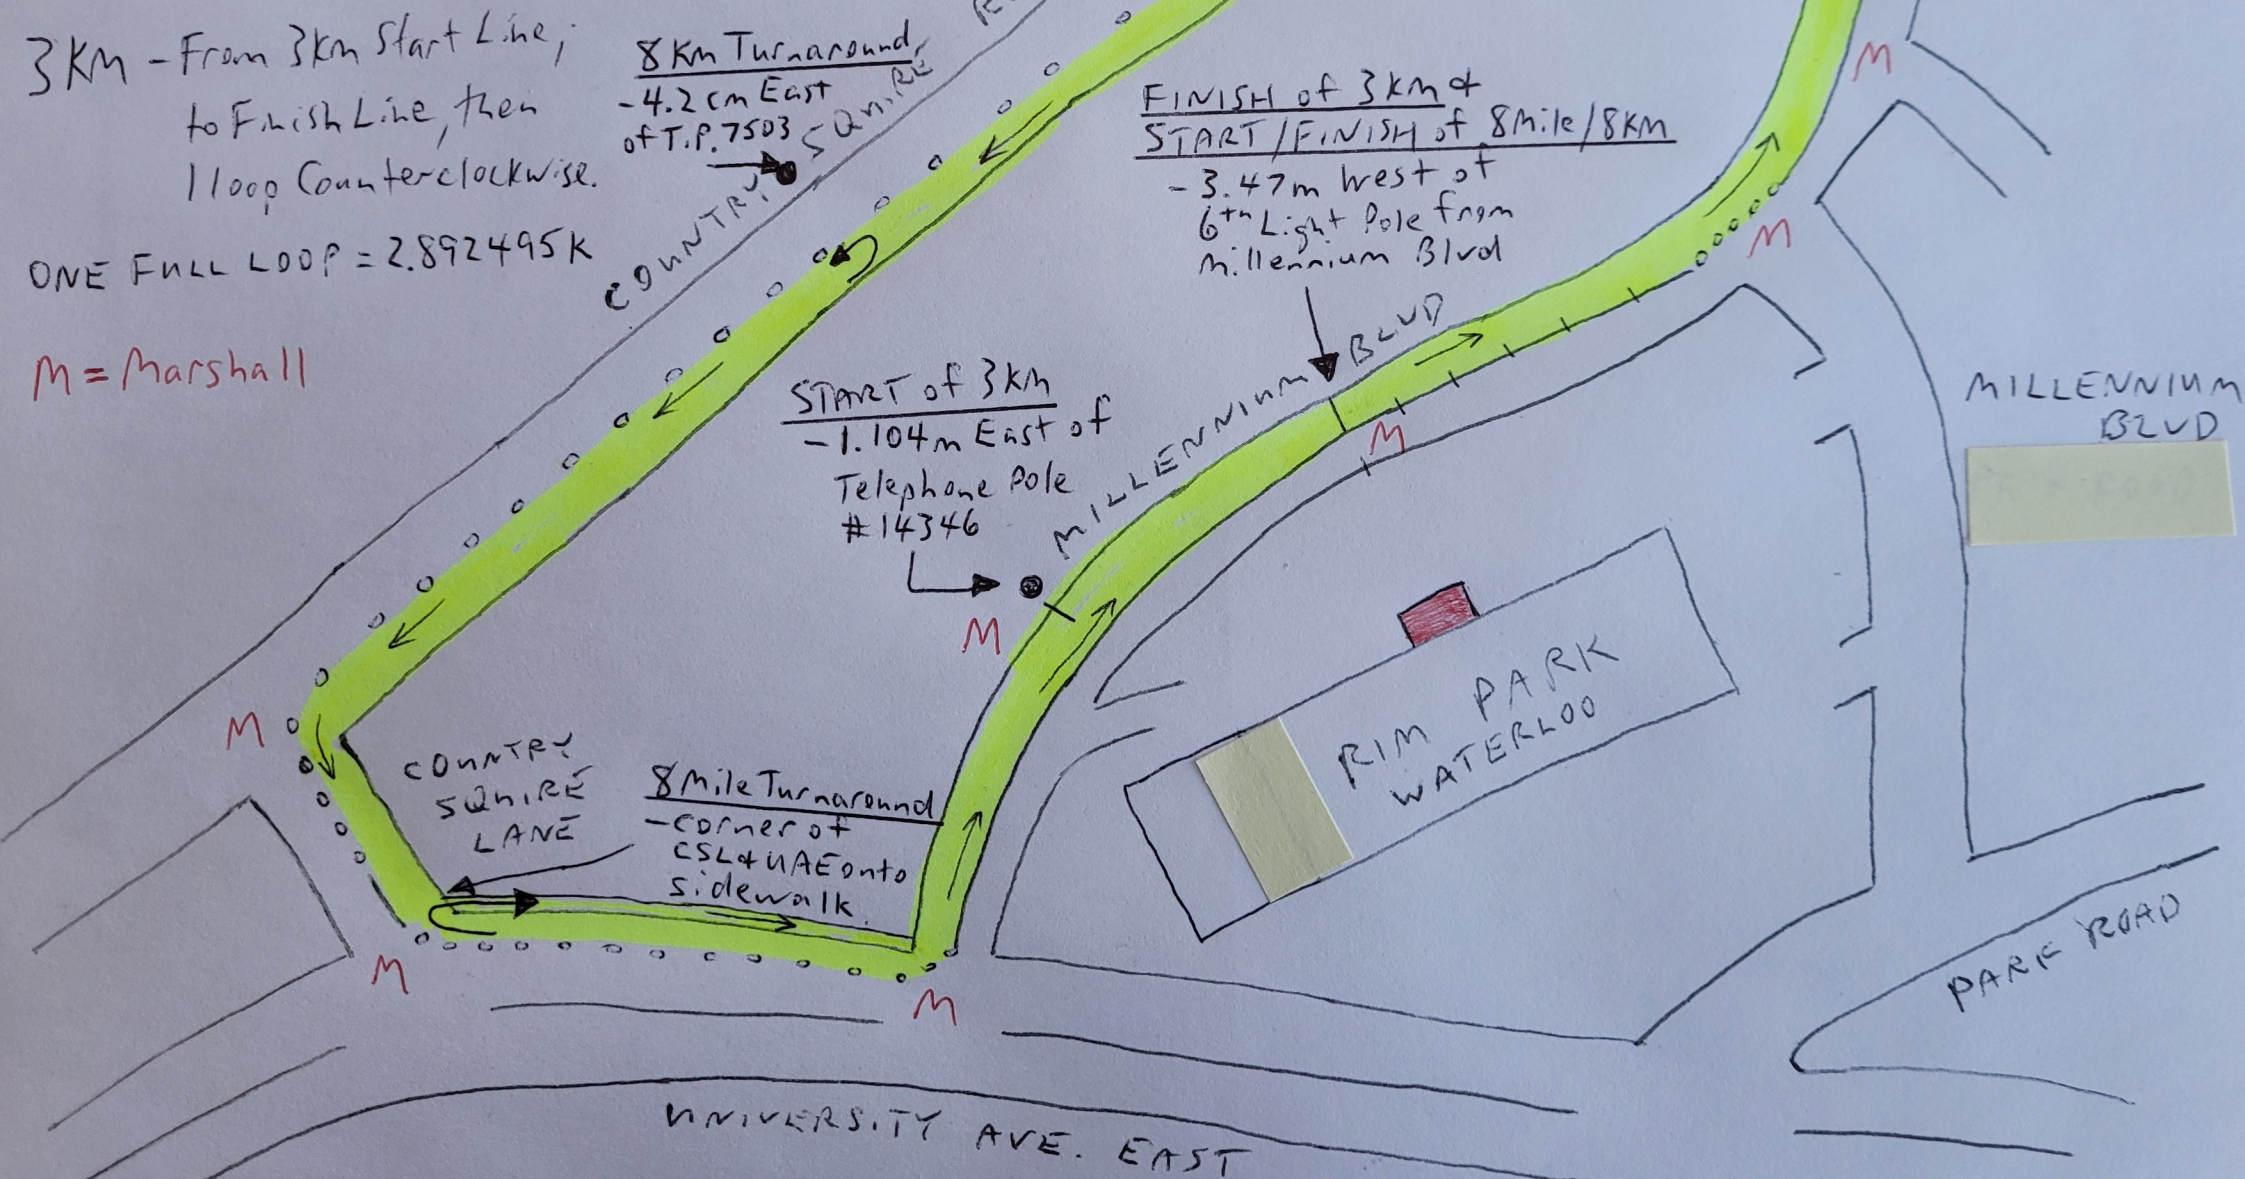 3KM - From 3km Start Line,
to Finish Line, then
1 loop Counterclockwise.
ONE FULL LOOP = 2.892495K
M = Marshall
8Km Turnaround
- 4.2 cm East
of T.P. 7503
COUNTRY SQUIRE
FINISH of 3KM &
START/FINISH of 8Mile/8KM
- 3.47m West of
6th Light Pole from
Millennium Blvd
START of 3KM
- 1.104m East of
Telephone Pole
#14346
MILLENNIUM BLVD
M
M
M
M
M
M
M
MILLENNIUM
BLVD
RIM PARK
WATERLOO
COUNTRY
SQUIRE
LANE
8Mile Turnaround
- corner of
CSL & UAE onto
sidewalk
PARK ROAD
UNIVERSITY AVE. EAST